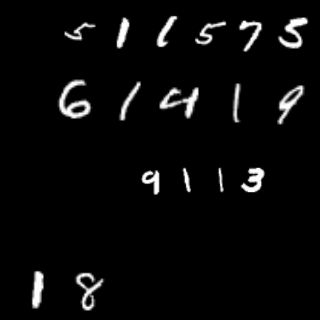 511575
61419
9113
18